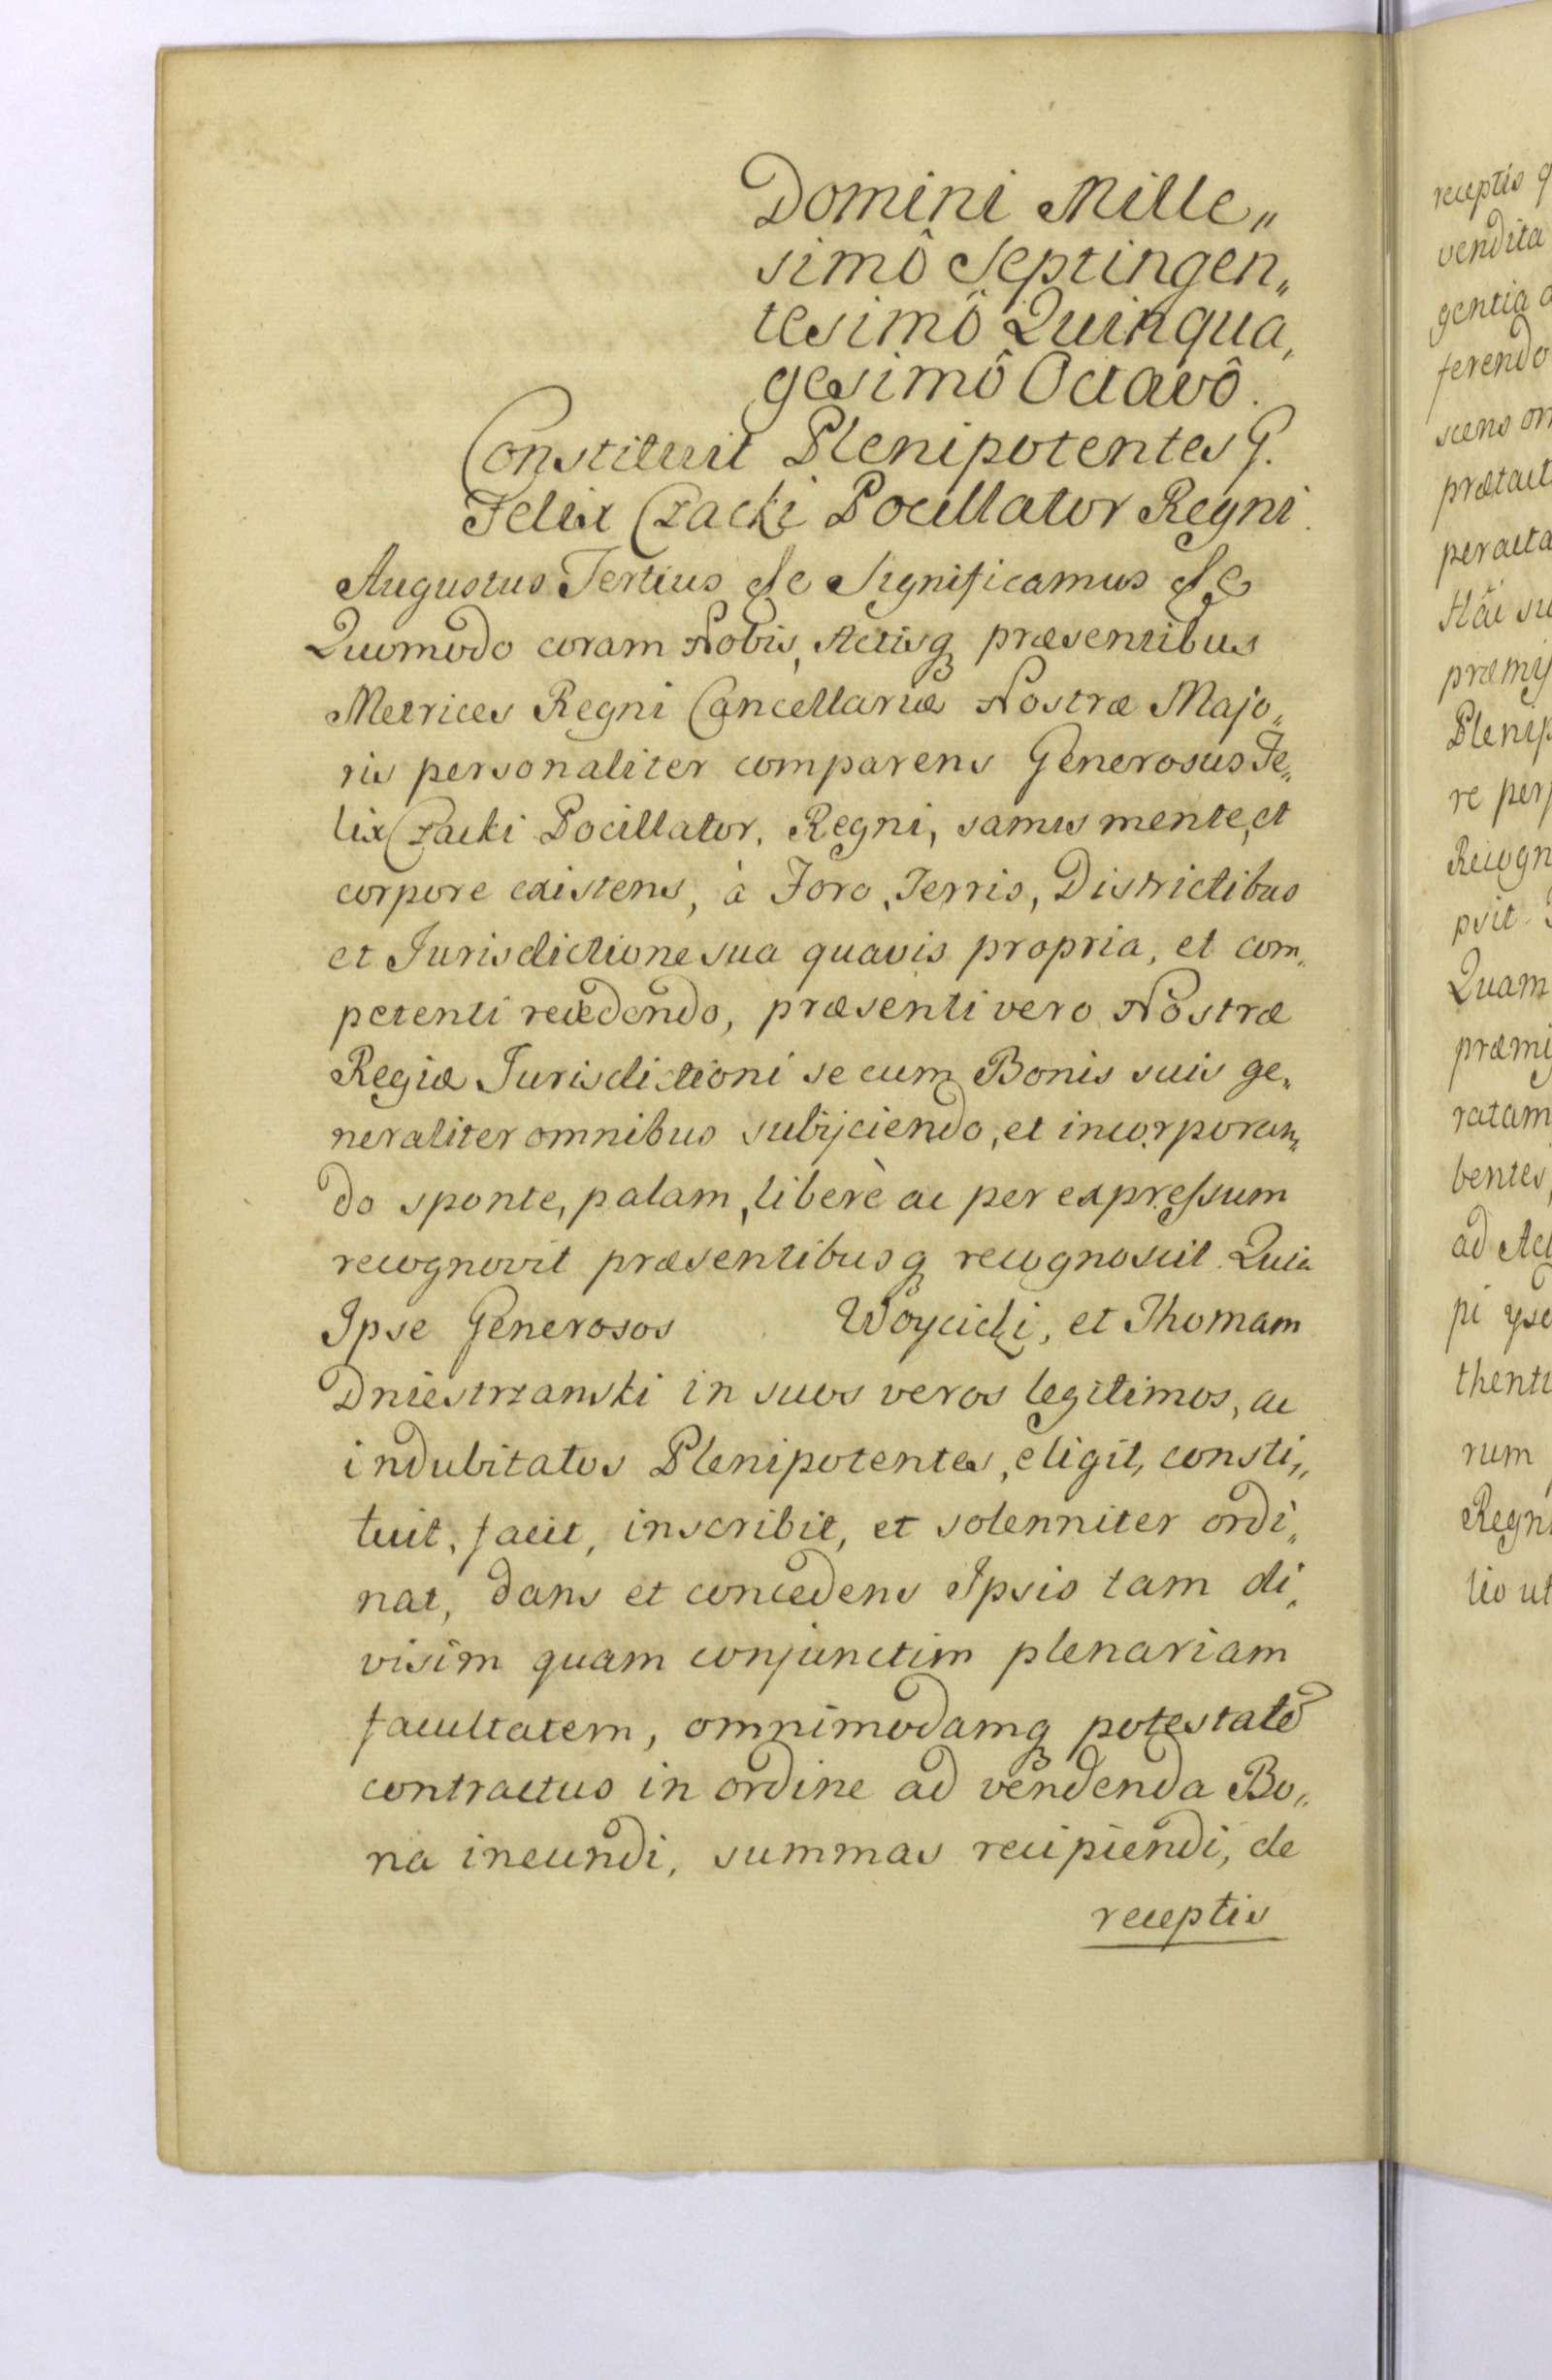 Domini Mille„
simô Septingen„
tesimô Quinqua„
gesimô Octavô.
Constituit Plenipotentes G.
Felix Czacki Pocillator Regni.
Augustus Tertius &c Significamus &c
Quomodo coram Nobis, Actisq3 præsentibus
Metrices Regni Cancellariæ Nostræ Majo„
ris personaliter comparens Generosus Fe„
lix Czacki Pocillator. Regni, sanus mente, et
corpore existens, à Foro, Terris, Districtibus
et Jurisdictione sua quavis propria, et com„
petenti recedendo, præsenti vero Nostræ
Regiæ Jurisdictioni se cum Bonis suis ge„
neraliter omnibus subijciendo, et incorporan„
do sponte, palam, liberè ac per expressum
recognovit præsentibusq3 recognoscit. Quia
Ipse Generosos Woycicki, et Thomam
Dniestrzanski in suos veros legitimos, ac
indubitatos Plenipotentes, eligit, consti„
tuit, facit, inscribit, et solenniter ordi„
nat, dans et concedens Ipsis tam di„
visim quam conjunctim plenariam
facultatem, omnimodamq3 potestatē
contractus in ordine ad vendenda Bo„
na ineundi, summas recipiendi, de
receptis
receptis q
vendita
gentia
ferendo
scens
prætact
peracta
su
præmis
Plenip
re per
Recogn
Quam
præmi
ratam
bentes,
ad Act
pi
thenti
rum
Regni
lio ut